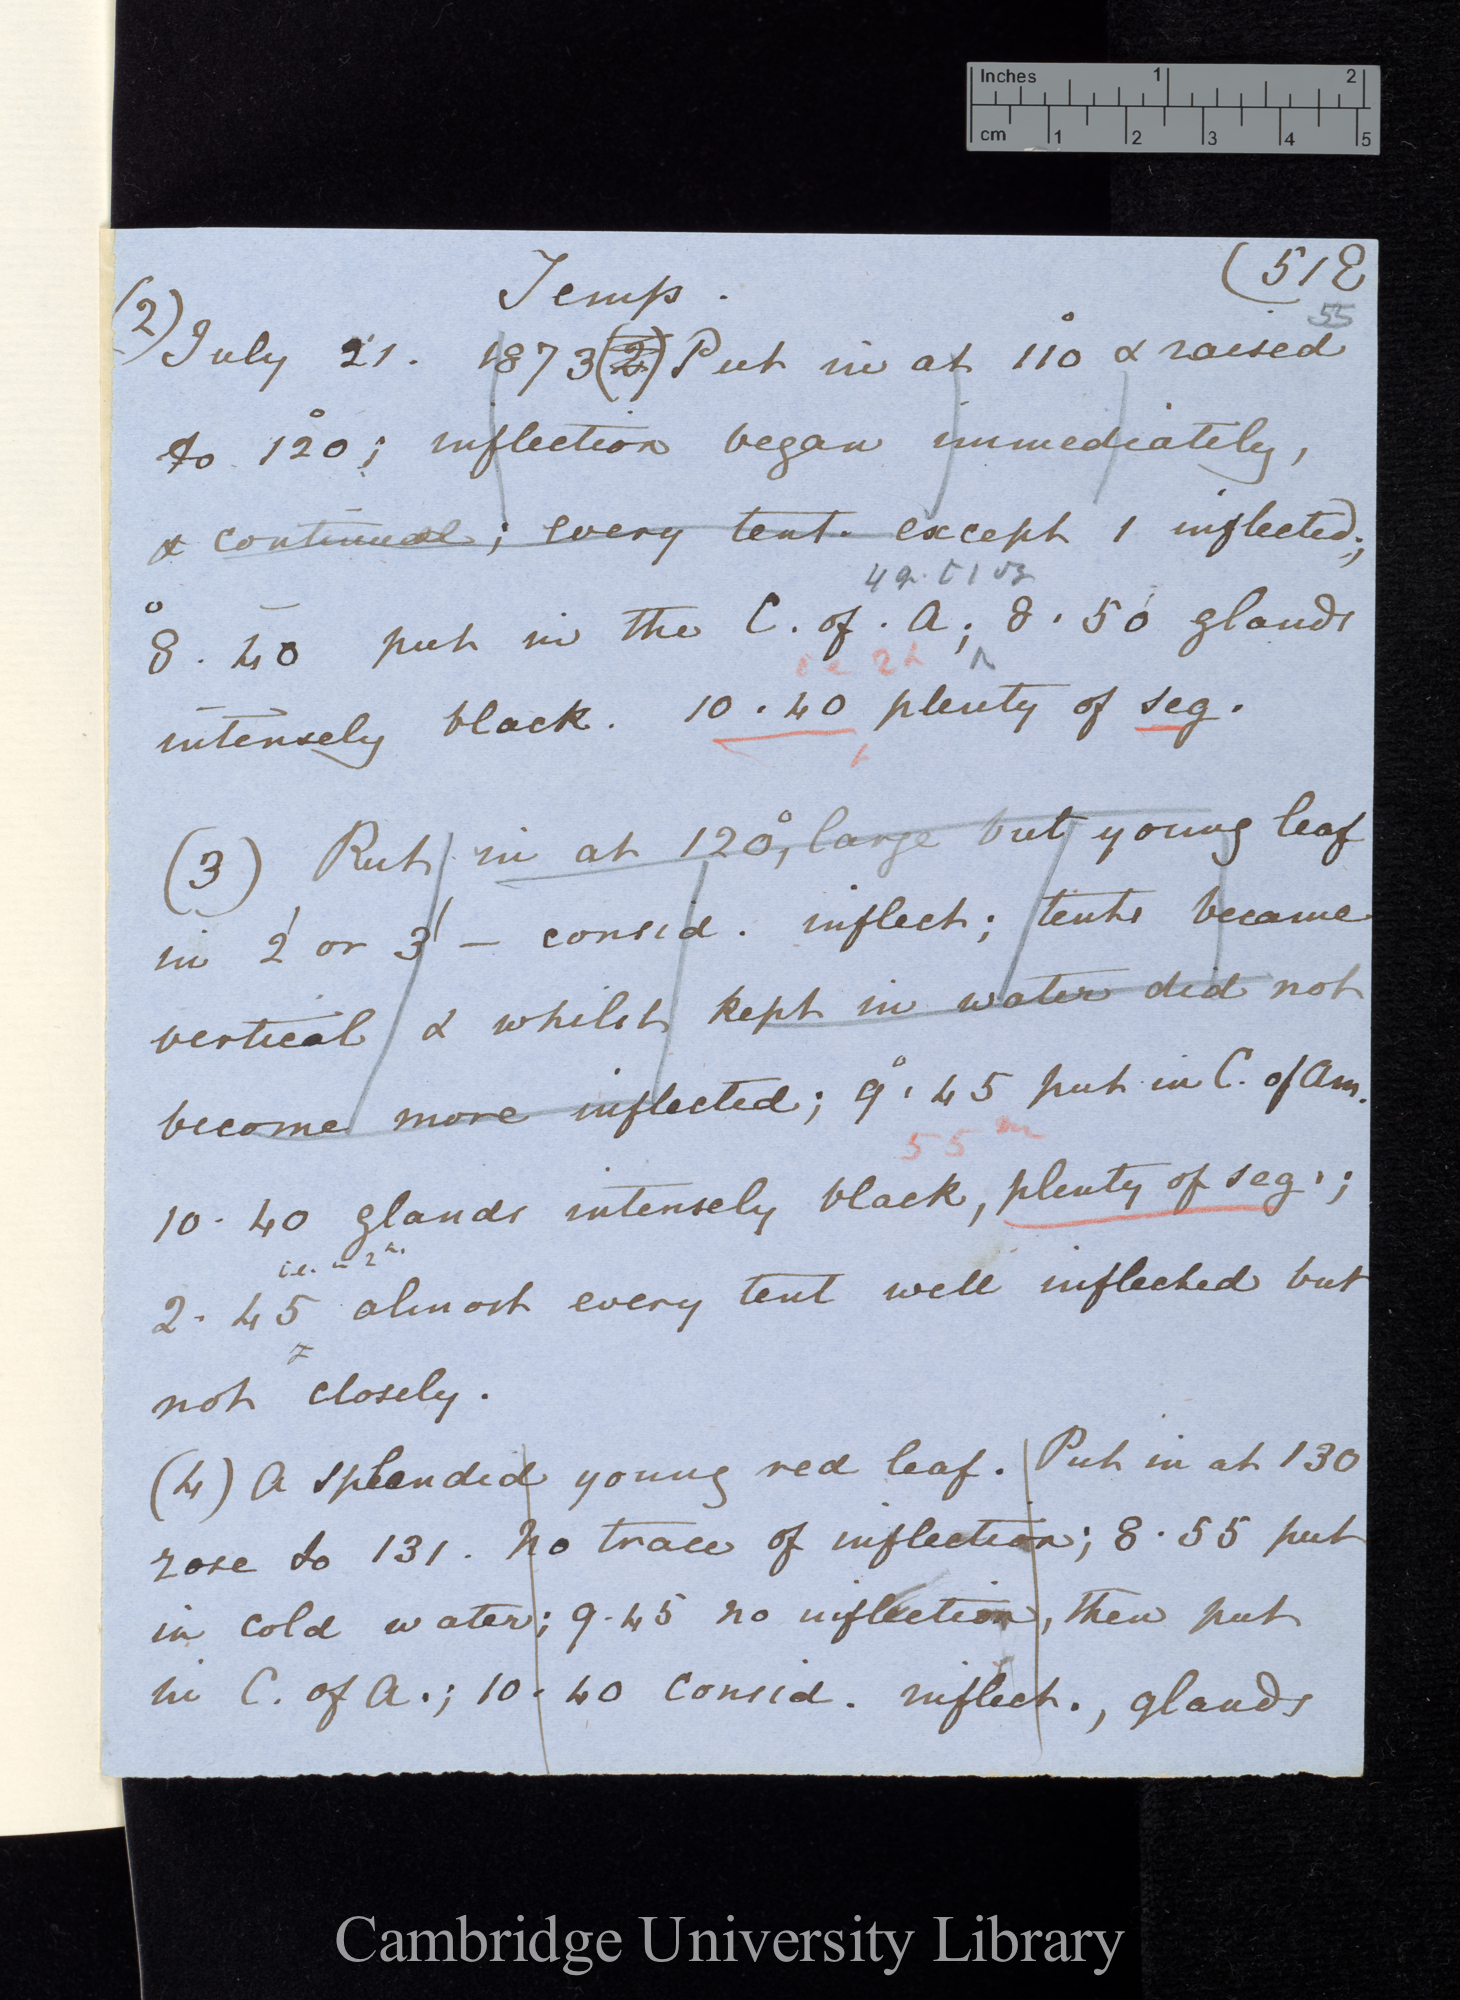 Inches 1 2
cm 1 2 3 4 5
Temp.
(518
55
(2) July 21. 1873 (2) Put in at 110° & raised
to 120°; inflection began immediately,
& continued; every tent. except 1 inflected;
8°. 40 put in the C. of. A; 8. 50' glands
i e 2 h
intensely black. 10. 40 plenty of seg.
(3) Put in at 120°, large but young leaf
in 2' or 3' — consid. inflect; tents became
vertical & whilst kept in water did not
become more inflected; 9°. 45 put in C. of Am.
55 m
10. 40 glands intensely black, plenty of seg.;
i.e. in 2 h.
2. 45 almost every tent well inflected but
not closely.
(4) A splendid young red leaf. Put in at 130
rose to 131. No trace of inflection; 8. 55 put
in cold water; 9. 45 no inflection, then put
in C. of A.; 10. 40 consid. inflect., glands
Cambridge University Library